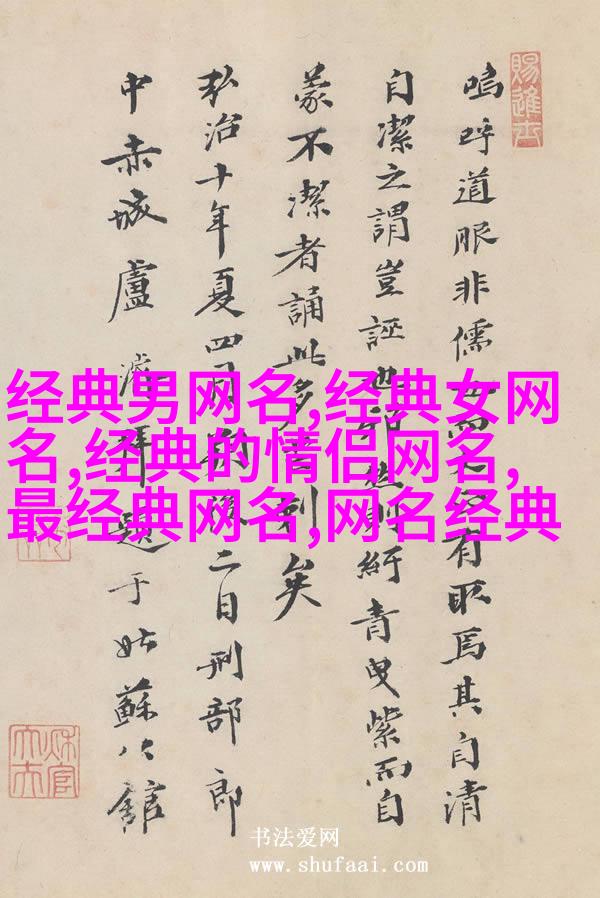 賜進士
嗚呼道服非儒
有取焉其自清
自潔之謂豈誣也
紆青曳紫而自
蒙不潔者誦此多
矣
弘治十年夏四月
二日刑部郎
中赤城盧
拜題于姑蘇公館
秋官
经典男网名,经典女网
名,经典的情侣网名,
最经典网名,网名经典
书法爱网
www.shufaai.com